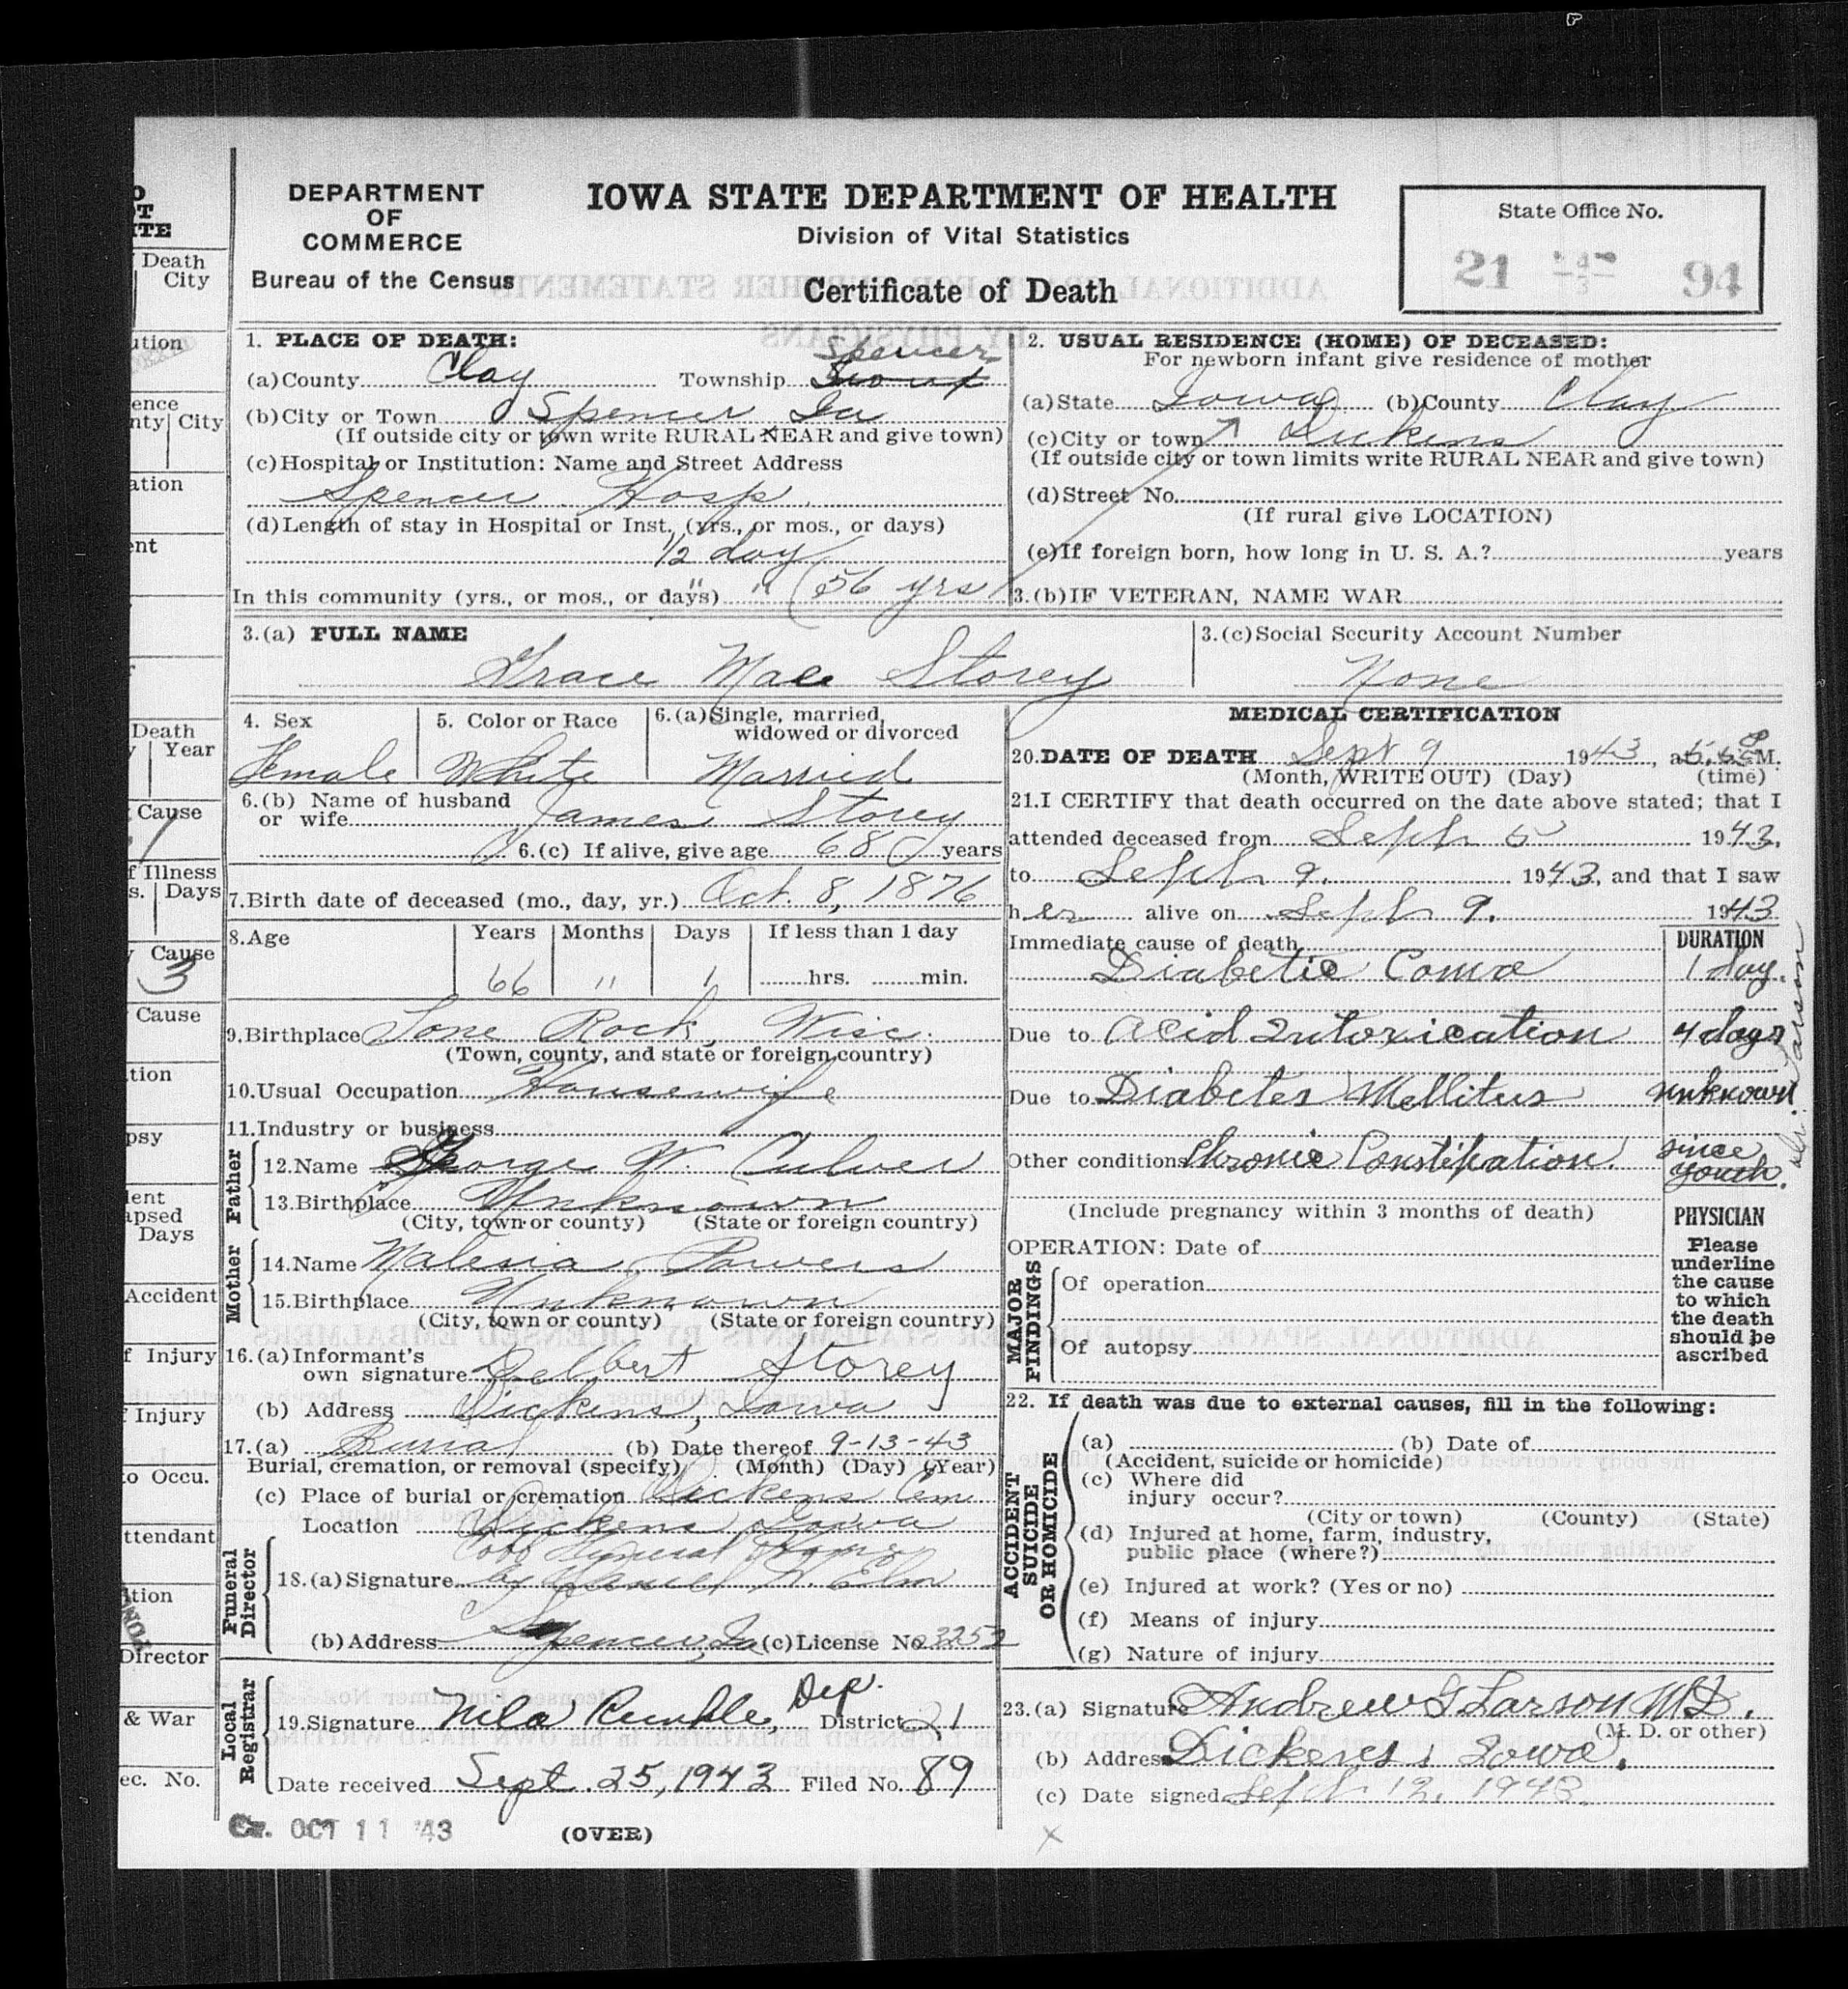 DEPARTMENT
OF
COMMERCE
Bureau of the Census
IOWA STATE DEPARTMENT OF HEALTH
Division of Vital Statistics
Certificate of Death
State Office No.
21 94
1. PLACE OF DEATH:
Spencer
(a) County Clay Township Sioux
(b) City or Town Spencer Ia
(If outside city or town write RURAL NEAR and give town)
(c) Hospital or Institution: Name and Street Address
Spencer Hosp.
(d) Length of stay in Hospital or Inst., (yrs., or mos., or days)
1/2 day
In this community (yrs., or mos., or days) " " (56 yrs
2. USUAL RESIDENCE (HOME) OF DECEASED:
For newborn infant give residence of mother
(a) State Iowa (b) County Clay
(c) City or town Dickens
(If outside city or town limits write RURAL NEAR and give town)
(d) Street No.
(If rural give LOCATION)
(e) If foreign born, how long in U. S. A.? years
3.(b) IF VETERAN, NAME WAR
3.(a) FULL NAME
Grace Mae Storey
3.(c) Social Security Account Number
None
4. Sex
Female
5. Color or Race
White
6.(a) Single, married,
widowed or divorced
Married
6.(b) Name of husband
or wife James Storey
6.(c) If alive, give age 68 years
7. Birth date of deceased (mo., day, yr.) Oct. 8, 1876
8. Age
Years Months Days If less than 1 day
66 11 1 hrs. min.
9. Birthplace Lone Rock, Wisc.
(Town, county, and state or foreign country)
10. Usual Occupation Housewife
11. Industry or business
Father
12. Name George W. Culver
13. Birthplace Unknown
(City, town or county) (State or foreign country)
Mother
14. Name Malesia Powers
15. Birthplace Unknown
(City, town or county) (State or foreign country)
16.(a) Informant's
own signature Delbert Storey
(b) Address Dickens, Iowa
17.(a) Burial (b) Date thereof 9-13-43
Burial, cremation, or removal (specify) (Month) (Day) (Year)
(c) Place of burial or cremation Dickens Cem
Location Dickens Iowa
Funeral
Director
Cobb Funeral Home
18.(a) Signature by W. Elm
(b) Address Spencer, Ia (c) License No 3252
Local
Registrar
Dep.
19. Signature Nila Rumble, District 21
Date received Sept. 25, 1943 Filed No. 89
OCT 11 '43
(OVER)
MEDICAL CERTIFICATION
20. DATE OF DEATH Sept 9 1943, at M.
(Month, WRITE OUT) (Day) (time)
21. I CERTIFY that death occurred on the date above stated; that I
attended deceased from Sept 5 1943,
to Sept 9. 1943, and that I saw
her alive on Sept 9. 1943
Immediate cause of death DURATION
Diabetic Coma 1 day.
Due to Acid Intoxication 4 days
Due to Diabetes Mellitus unknown
Other conditions Chronic Constipation. since
youth.
Dr. Larson
(Include pregnancy within 3 months of death)
MAJOR
FINDINGS
OPERATION: Date of
Of operation
Of autopsy
PHYSICIAN
Please
underline
the cause
to which
the death
should be
ascribed
22. If death was due to external causes, fill in the following:
ACCIDENT
SUICIDE
OR HOMICIDE
(a) (b) Date of
(Accident, suicide or homicide)
(c) Where did
injury occur?
(City or town) (County) (State)
(d) Injured at home, farm, industry,
public place (where?)
(e) Injured at work? (Yes or no)
(f) Means of injury
(g) Nature of injury
23.(a) Signature Andrew G Larson M.D.
(M. D. or other)
(b) Address Dickens, Iowa.
(c) Date signed Sept 12, 1943.